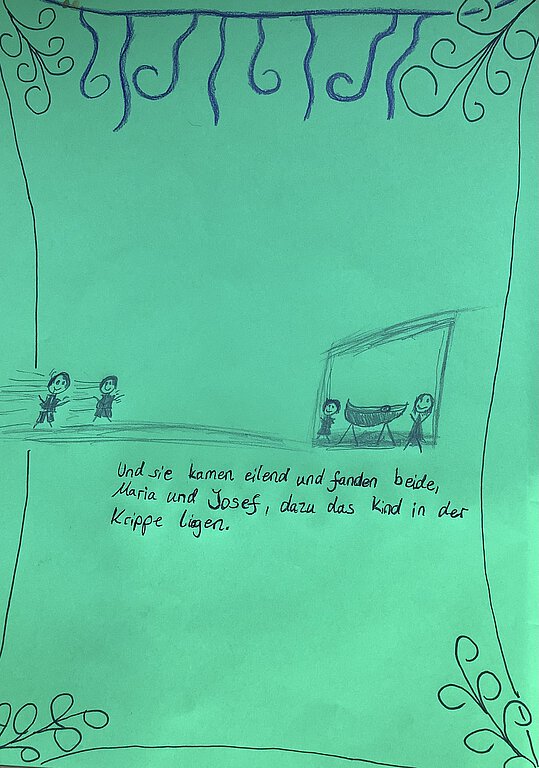 Und sie kamen eilend und fanden beide,
Maria und Josef, dazu das Kind in der
Krippe liegen.